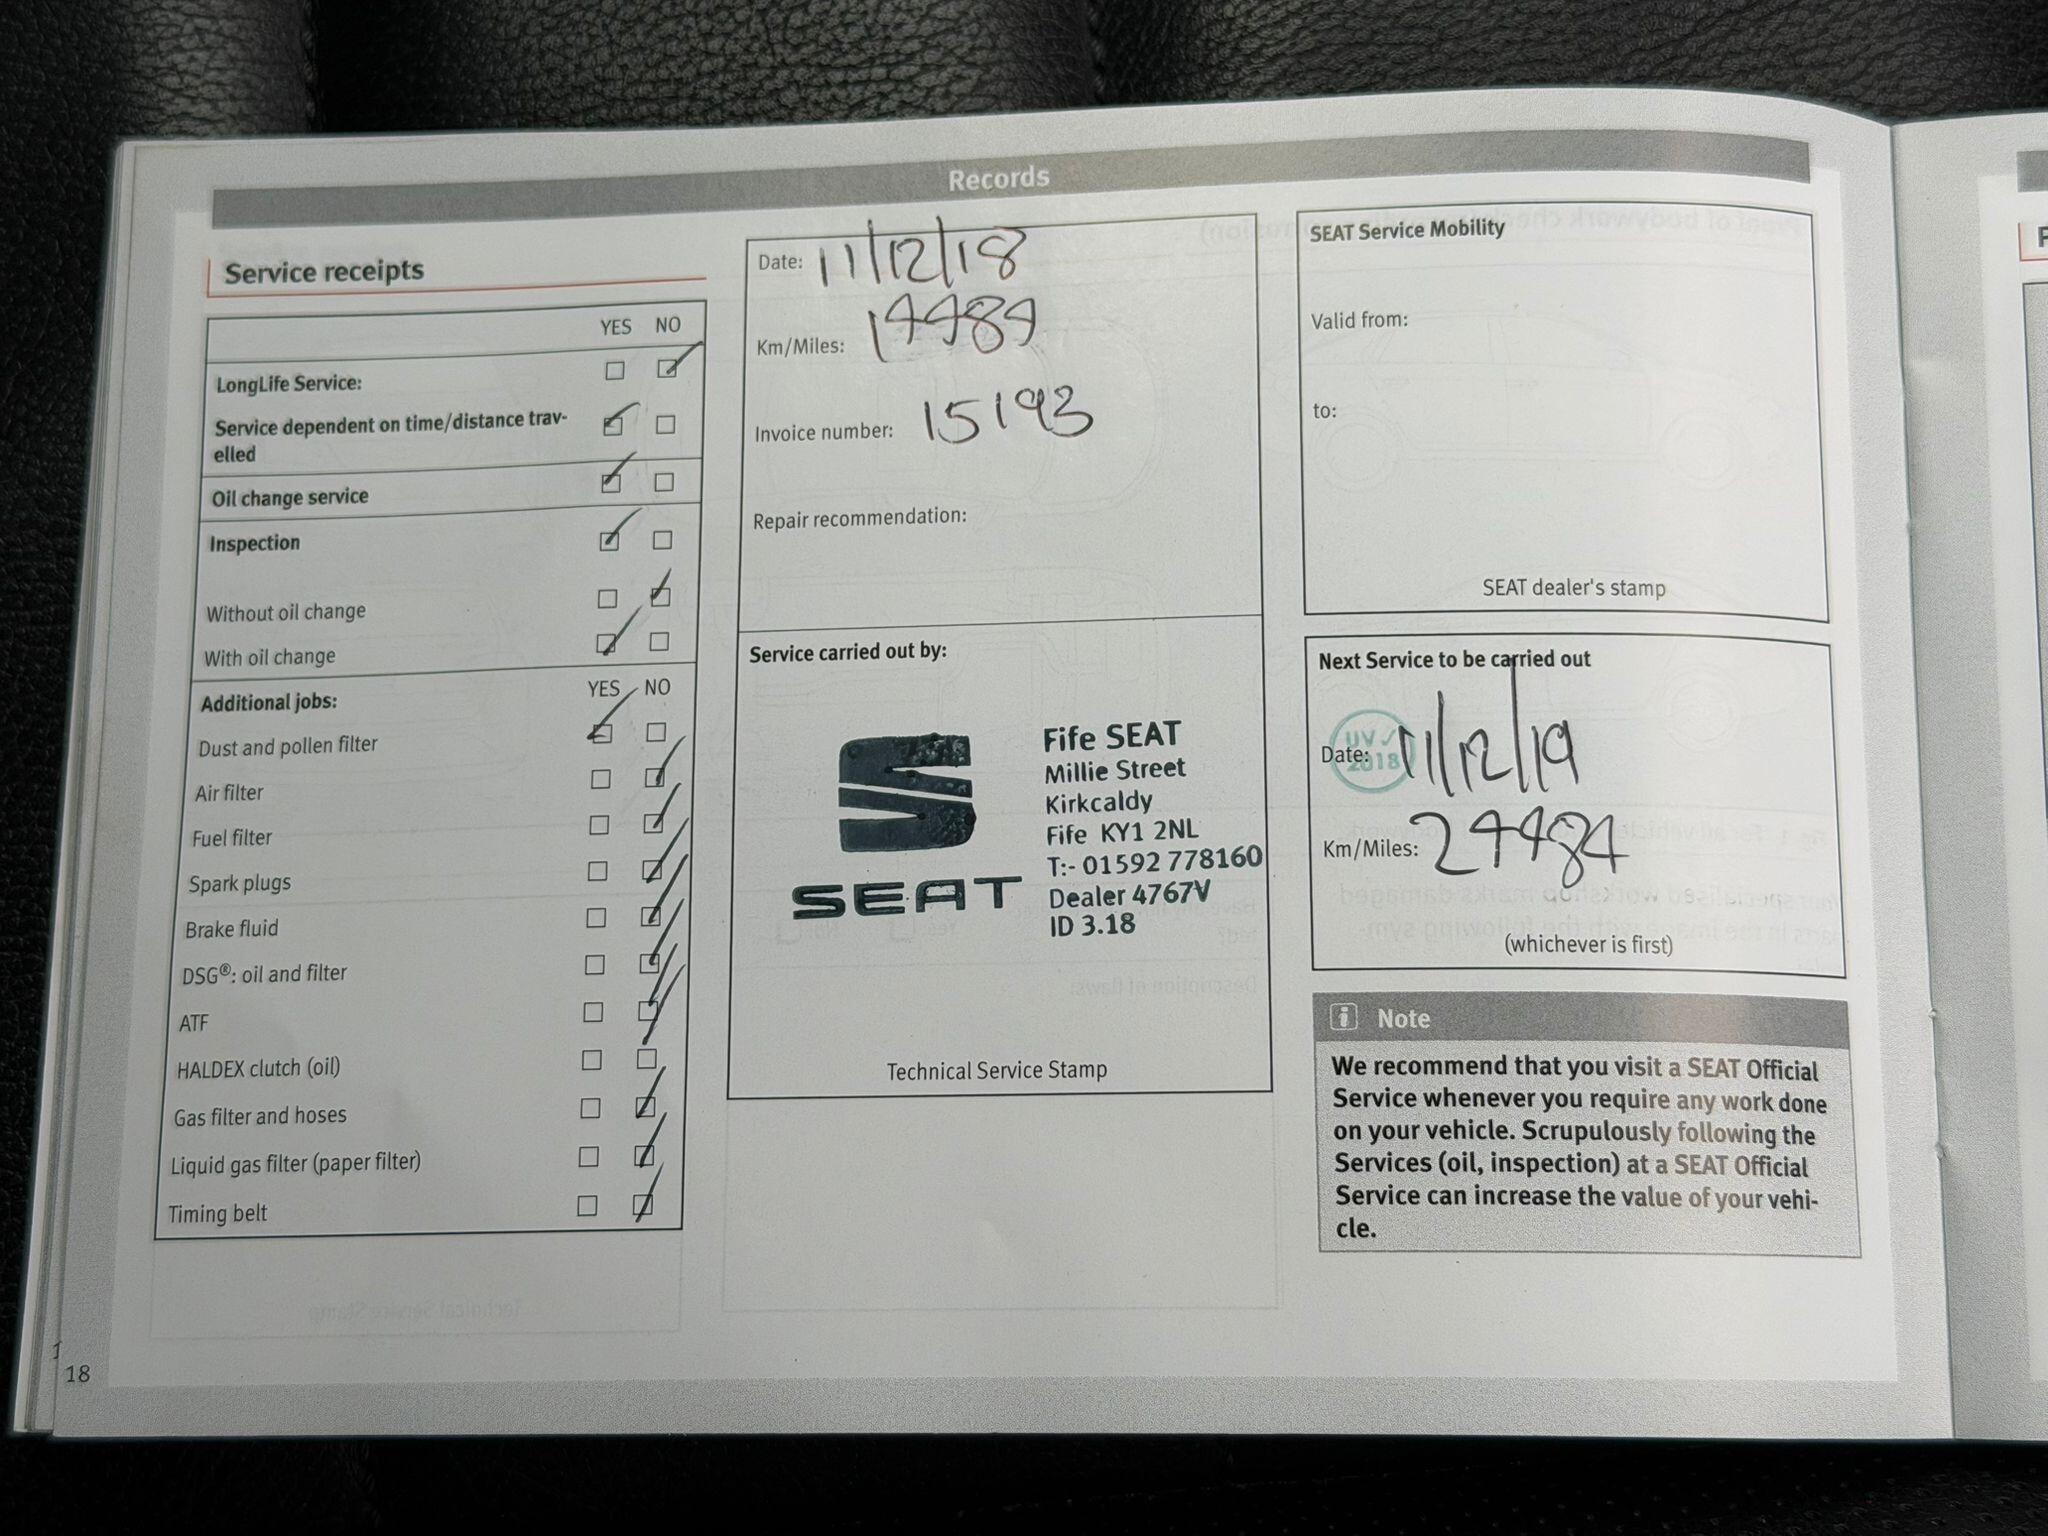 Records
Service receipts
YES NO
LongLife Service:
Service dependent on time/distance trav-
elled
Oil change service
Inspection
Without oil change
With oil change
Additional jobs: YES NO
Dust and pollen filter
Air filter
Fuel filter
Spark plugs
Brake fluid
DSG®: oil and filter
ATF
HALDEX clutch (oil)
Gas filter and hoses
Liquid gas filter (paper filter)
Timing belt
18
Date: 11/12/18
Km/Miles: 14484
Invoice number: 15193
Repair recommendation:
Service carried out by:
SEAT
Fife SEAT
Millie Street
Kirkcaldy
Fife KY1 2NL
T:- 01592 778160
Dealer 4767V
ID 3.18
Technical Service Stamp
SEAT Service Mobility
Valid from:
to:
SEAT dealer's stamp
Next Service to be carried out
UV ✓
2018
Date: 11/12/19
Km/Miles: 24484
(whichever is first)
i Note
We recommend that you visit a SEAT Official
Service whenever you require any work done
on your vehicle. Scrupulously following the
Services (oil, inspection) at a SEAT Official
Service can increase the value of your vehi-
cle.